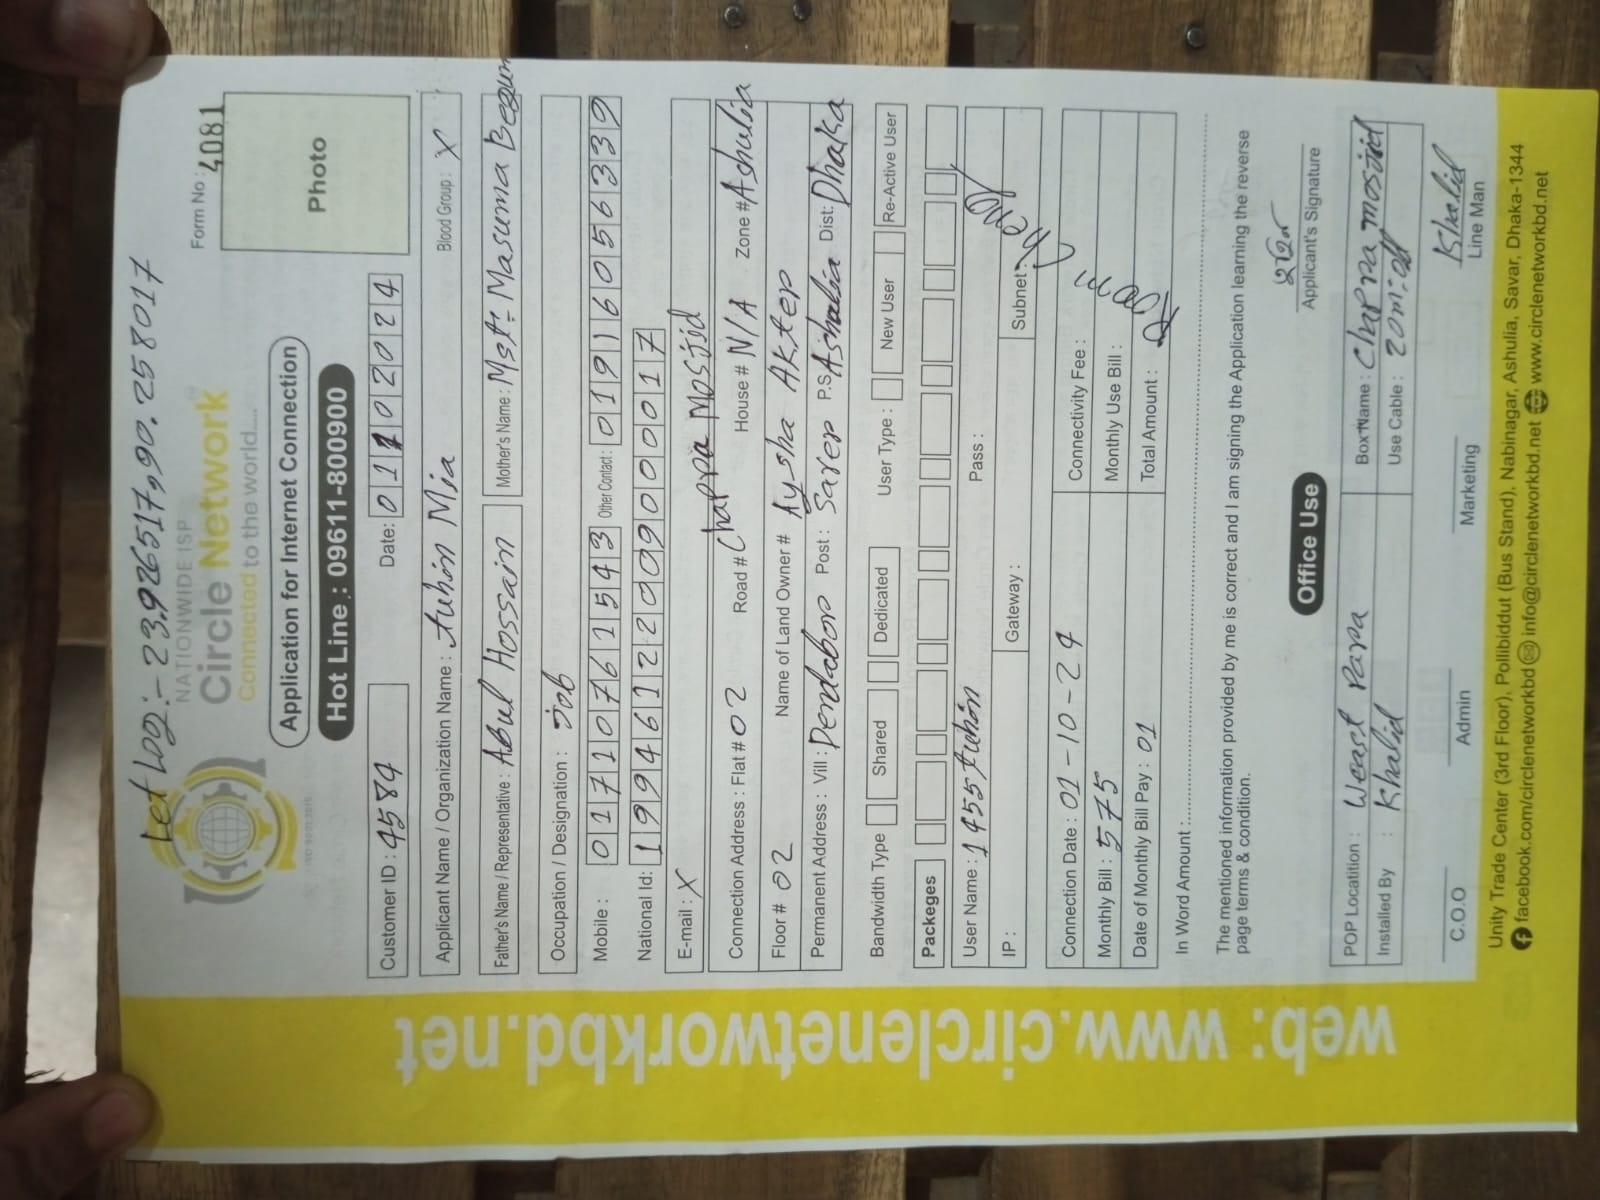 Let Log:- 23.926517,90.258017
NATIONWIDE ISP
Circle Network
Connected to the world....
Form No : 4081
Photo
Application for Internet Connection
Hot Line : 09611-800900
Customer ID : 4584 Date: 01102024
Applicant Name / Organization Name : tuhin Mia Blood Group : X
Father's Name / Representative : Abul Hossain Mother's Name : Mst: Masuma Begum
Occupation / Designation : Job
Mobile : 01710761543 Other Contact : 01916056339
National Id: 19946122099000017
E-mail : X
Connection Address : Flat # 02 Road # Chappa Mosjid House # N/A Zone # Ashulia
Floor # 02 Name of Land Owner # Aysha Akter
Permanent Address : Vill : Dendabor Post : Saver P.S Ashulia Dist: Dhaka
Bandwidth Type Shared Dedicated User Type : New User Re-Active User
Packeges
User Name : 1455tuhin Pass :
IP : Gateway : Subnet :
Room Cheng
Connection Date : 01-10-24 Connectivity Fee :
Monthly Bill : 575 Monthly Use Bill :
Date of Monthly Bill Pay : 01 Total Amount :
In Word Amount :
The mentioned information provided by me is correct and I am signing the Application learning the reverse
page terms & condition.
Applicant's Signature
Office Use
POP Locatition : Weast Para Box Name : Chappa mosjid
Installed By : Khalid Use Cable : 20m
Khalid
C.O.O Admin Marketing Line Man
Unity Trade Center (3rd Floor), Pollibiddut (Bus Stand), Nabinagar, Ashulia, Savar, Dhaka-1344
facebook.com/circlenetworkbd info@circlenetworkbd.net www.circlenetworkbd.net
web: www.circlenetworkbd.net